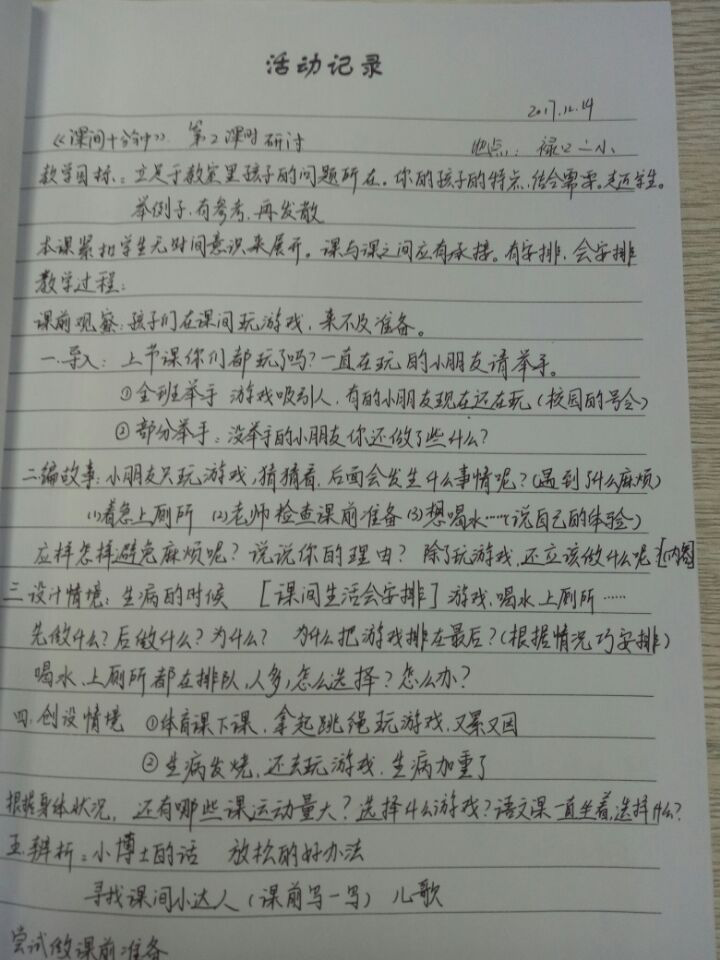 活动记录
2017.12.14
《课间十分钟》 第2课时研讨 地点：禄口二小
教学目标：立足于教室里孩子的问题所在。你的孩子的特点，结合需要。走近学生。
举例子，有参考，再发散
本课紧扣学生无时间意识来展开。课与课之间应有承接。有安排，会安排
教学过程：
课前观察：孩子们在课间玩游戏，来不及准备。
一.导入：上节课你们都玩了吗？一直在玩的小朋友请举手。
①全班举手 游戏吸引人，有的小朋友现在还在玩（校园的号令）
②部分举手：没举手的小朋友你还做了些什么？
二编故事：小朋友只玩游戏，猜猜看，后面会发生什么事情呢？（遇到了什么麻烦）
(1)着急上厕所 (2)老师检查课前准备 (3)想喝水……（说自己的体验）
应样怎样避免麻烦呢？说说你的理由？ 除了玩游戏，还应该做什么呢？
三.设计情境：生病的时候 [课间生活会安排] 游戏、喝水、上厕所……
先做什么？后做什么？为什么？ 为什么把游戏排在最后？（根据情况巧安排）
喝水、上厕所都在排队，人多，怎么选择？怎么办？
四.创设情境 ①体育课下课，拿起跳绳玩游戏，又累又困
②生病发烧，还去玩游戏，生病加重了
根据身体状况，还有哪些课运动量大？选择什么游戏？语文课一直坐着，选择什么？
五.辨析：小博士的话 放松的好办法
寻找课间小达人（课前写一写） 儿歌
尝试做课前准备